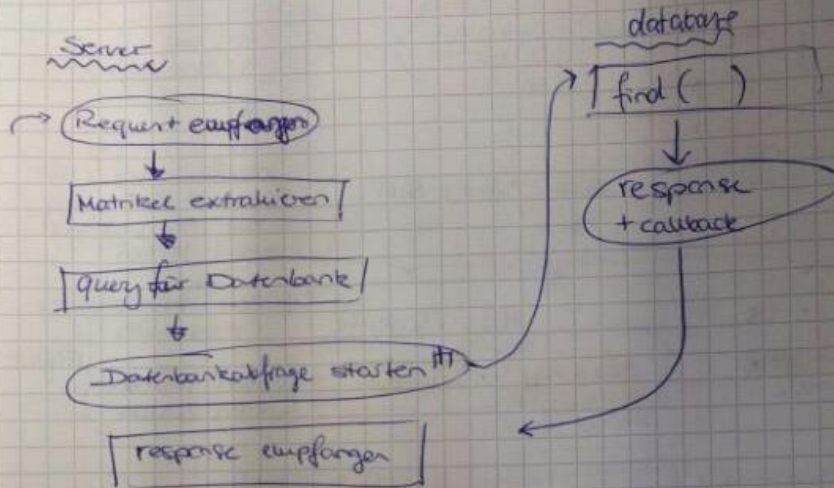 Server
Request empfangen
Matrikel extrahieren
Query für Datenbank
Datenbankabfrage starten
response empfangen
database
find ( )
response
+ callback